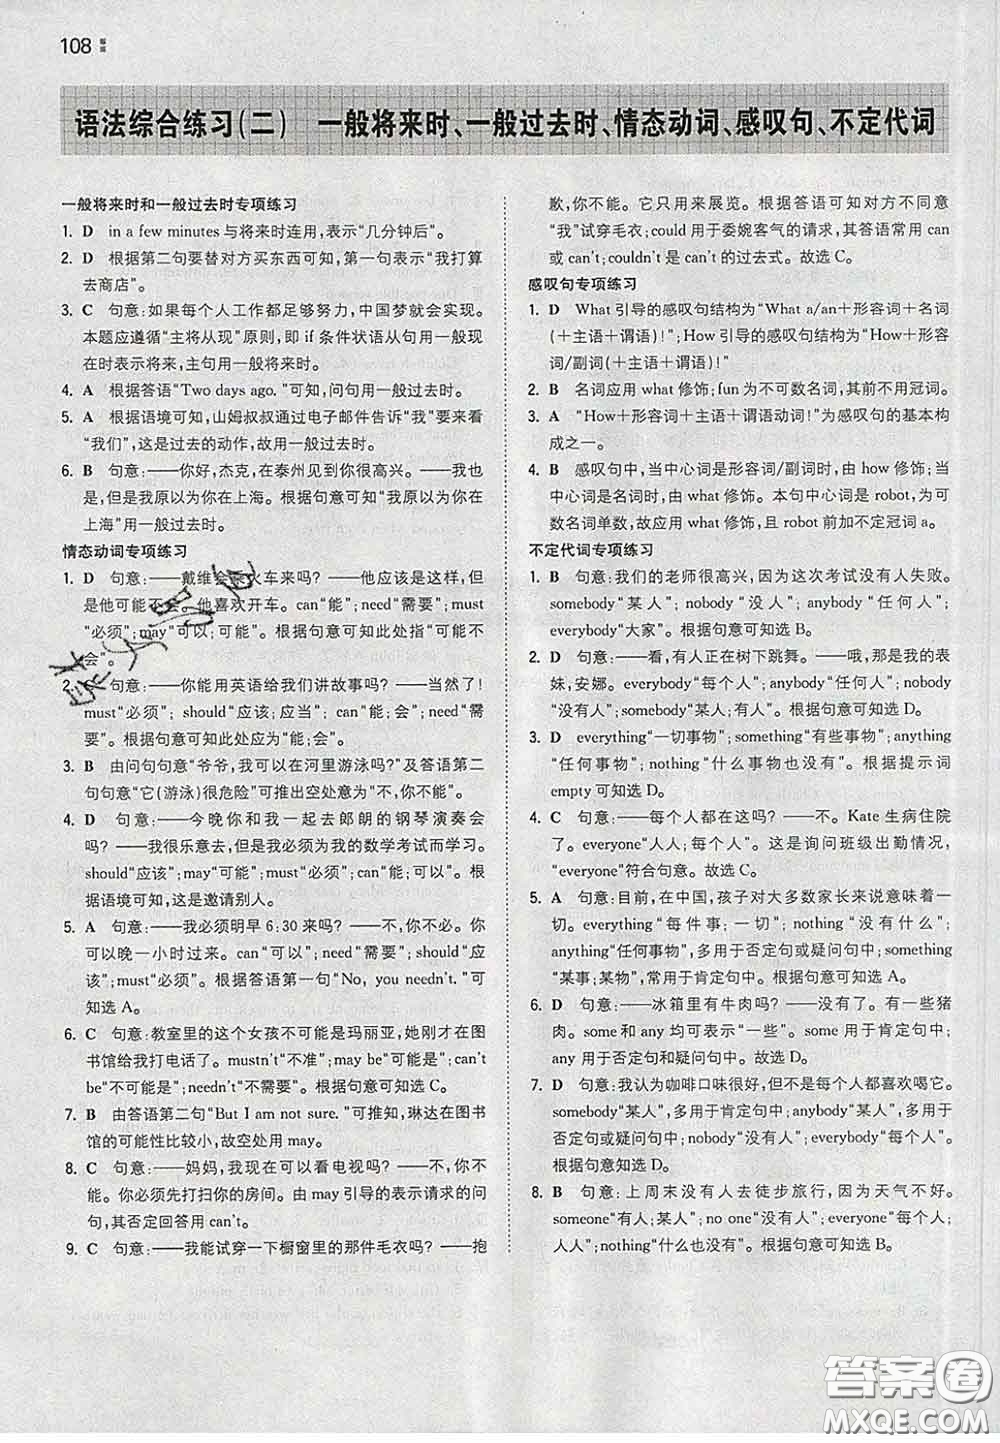 108 解密
语法综合练习(二) 一般将来时、一般过去时、情态动词、感叹句、不定代词
一般将来时和一般过去时专项练习
1. D in a few minutes与将来时连用,表示“几分钟后”。
2. D 根据第二句要替对方买东西可知,第一句表示“我打算
去商店”。
3. C 句意:如果每个人工作都足够努力,中国梦就会实现。
本题应遵循“主将从现”原则,即 if 条件状语从句用一般现
在时表示将来,主句用一般将来时。
4. A 根据答语“Two days ago.”可知,问句用一般过去时。
5. A 根据语境可知,山姆叔叔通过电子邮件告诉“我”要来看
“我们”,这是过去的动作,故用一般过去时。
6. B 句意:——你好,杰克,在泰州见到你很高兴。——我也
是,但是我原以为你在上海。根据句意可知“我原以为你在
上海”用一般过去时。
情态动词专项练习
1. D 句意:——戴维会乘火车来吗? ——他应该是这样,但
是他可能不会。他喜欢开车。can“能”;need“需要”;must
“必须”;may“可以;可能”。根据句意可知此处指“可能不
会”。
2. 句意:——你能用英语给我们讲故事吗? ——当然了!
must“必须”;should“应该;应当”;can“能;会”;need“需
要”。根据句意可知此处应为“能;会”。
3. B 由问句句意“爷爷,我可以在河里游泳吗?”及答语第二
句句意“它(游泳)很危险”可推出空处意为“不,你不能”。
4. D 句意:——今晚你和我一起去郎朗的钢琴演奏会
吗? ——我很乐意去,但是我必须为我的数学考试而学习。
should“应该”;may“可能”;must“必须”;can“能;可以”。根
据语境可知,这是邀请别人。
5. A 句意:——我必须明早 6:30 来吗? ——不,你不必。你
可以晚一小时过来。can“可以”;need“需要”;should“应
该”;must“必须”。根据答语第一句“No, you needn't.”可
知选 A。
6. C 句意:教室里的这个女孩不可能是玛丽亚,她刚才在图
书馆给我打电话了。mustn't“不准”;may be“可能是”;can't
be“不可能是”;needn't“不需要”。根据句意可知选 C。
7. B 由答语第二句“But I am not sure.”可推知,琳达在图书
馆的可能性比较小,故空处用 may。
8. C 句意:——妈妈,我现在可以看电视吗? ——不,你不
能。你必须先打扫你的房间。由 may 引导的表示请求的问
句,其否定回答用 can't。
9. C 句意:——我能试穿一下橱窗里的那件毛衣吗? ——抱
歉,你不能。它只用来展览。根据答语可知对方不同意
“我”试穿毛衣;could 用于委婉客气的请求,其答语常用 can
或 can't;couldn't 是 can't 的过去式。故选 C。
感叹句专项练习
1. D What 引导的感叹句结构为“What a/an+形容词+名词
(+主语+谓语)!”;How 引导的感叹句结构为“How+形容
词/副词(+主语+谓语)!”
2. B 名词应用 what 修饰;fun 为不可数名词,其前不用冠词。
3. A “How+形容词+主语+谓语动词!”为感叹句的基本构
成之一。
4. B 感叹句中,当中心词是形容词/副词时,由 how 修饰;当
中心词是名词时,由 what 修饰。本句中心词是 robot,为可
数名词单数,故应用 what 修饰,且 robot 前加不定冠词 a。
不定代词专项练习
1. B 句意:我们的老师很高兴,因为这次考试没有人失败。
somebody“某人”;nobody“没人”;anybody“任何人”;
everybody“大家”。根据句意可知选 B。
2. D 句意:——看,有人正在树下跳舞。——哦,那是我的表
妹,安娜。everybody“每个人”;anybody“任何人”;nobody
“没有人”;somebody“某人;有人”。根据句意可知选 D。
3. D everything“一切事物”;something“有些事物”;anything
“任何事物”;nothing“什么事物也没有”。根据提示词
empty 可知选 D。
4. C 句意:——每个人都在这吗? ——不。Kate 生病住院
了。everyone“人人,每个人”。这是询问班级出勤情况,
“everyone”符合句意。故选 C。
5. A 句意:目前,在中国,孩子对大多数家长来说意味着一
切。everything“每件事;一切”;nothing“没有什么”;
anything“任何事物”,多用于否定句或疑问句中;something
“某事;某物”,常用于肯定句中。根据句意可知选 A。
6. D 句意:——冰箱里有牛肉吗? ——没有了。有一些猪
肉。some 和 any 均可表示“一些”。some 用于肯定句中;
any 用于否定句和疑问句中。故选 D。
7. D 句意:我认为咖啡口味很好,但不是每个人都喜欢喝它。
somebody“某人”,多用于肯定句中;anybody“某人”,多用于
否定句或疑问句中;nobody“没有人”;everybody“每个人”。
根据句意可知选 D。
8. B 句意:上周末没有人去徒步旅行,因为天气不好。
someone“有人;某人”;no one“没有人”;everyone“每个人;
人人”;nothing“什么也没有”。根据句意可知选 B。
答案圈
MXQE.COM